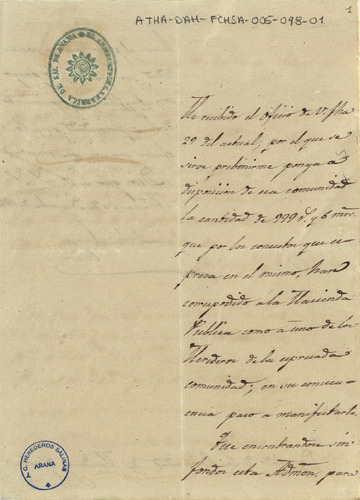 ATHA-DAH-FCHSA-005-098-01
1
FABRICA DE SAL DE AÑANA
He recibido el oficio de V. fha
29 del actual, por el que se
sirve prebenirme ponga a
disposicion de esa comunidad
la cantidad de 999 r.s y 6 mrs.
que por los conceptos que es-
presa en el mismo, han
correspondido á la Hacienda
Publica como á uno de los
Herederos de la espresada
comunidad; en su consecu-
encia paso a manifestarle
Que encontrandose sin
fondos esta Admon. para
T. C. HEREDEROS SALINAS
AÑANA